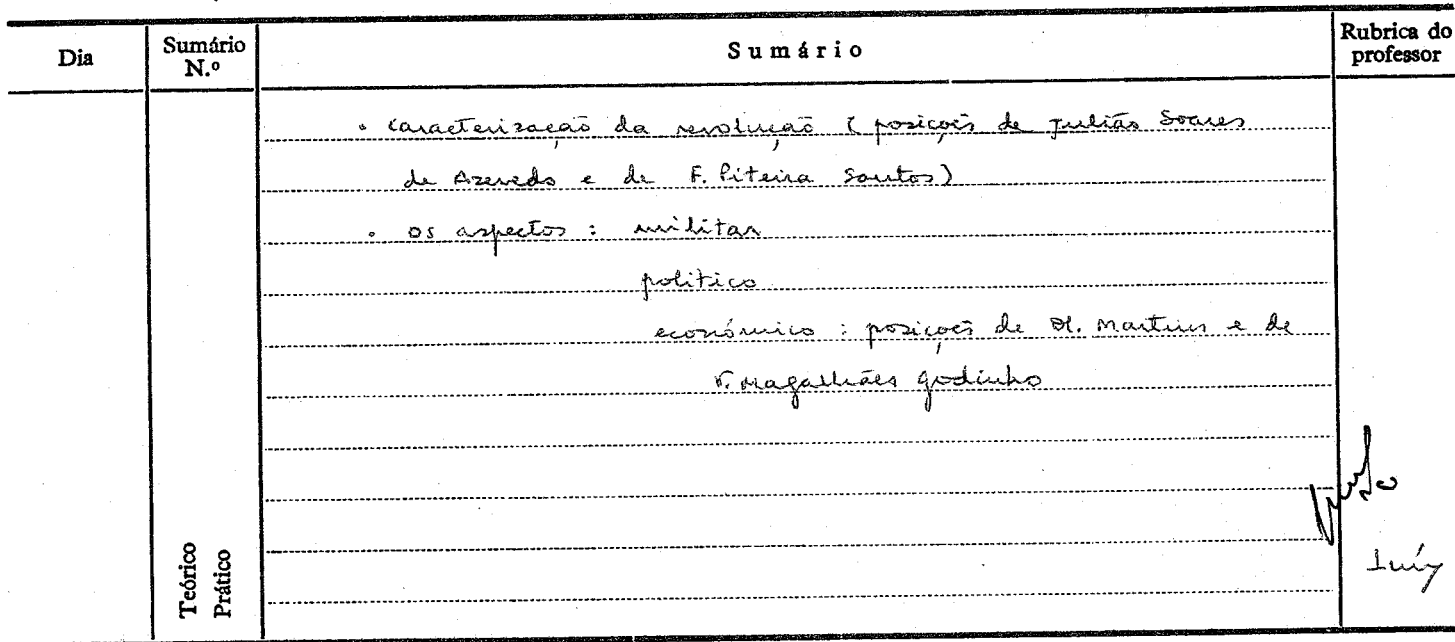 Dia
Sumário N.º
Sumário
Rubrica do professor
• Caracterização da revolução (posições de Julião Soares
de Azevedo e de F. Piteira Santos)
• Os aspectos : militar
político
económico : posições de H. Martins e de
V. Magalhães Godinho
Teórico
Prático
Luís